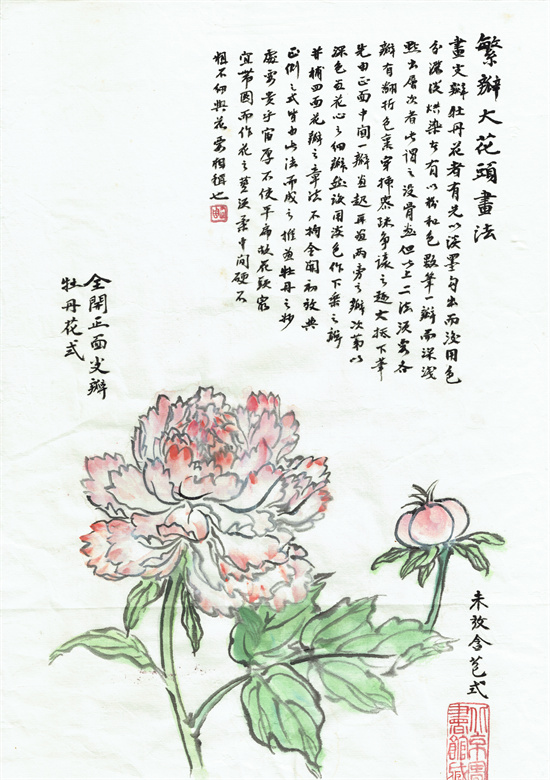 繁瓣大花頭畫法
畫尖瓣牡丹花者有先以淡墨勾出而後用色
分深淺烘染者有以粉和色數筆一瓣而深淺
點出層次者皆謂之沒骨畫但以上二法須要各
瓣有翻折包裹穿插密疎爭讓之趣大抵下筆
先由正面中間一瓣畫起再畫兩旁之瓣次第以
深色畫花心之細瓣然後用淡色作下垂之瓣
并補四面花瓣之章法不拘全開初放與
正側之式皆由此法而成之推畫牡丹之妙
處要貴乎富厚不使平扁故花頭最
宜帶圓而作花之莖須柔中間硬不
粗不細與花要相稱也
全開正面尖瓣
牡丹花式
未放含苞式
北京圖
書館藏